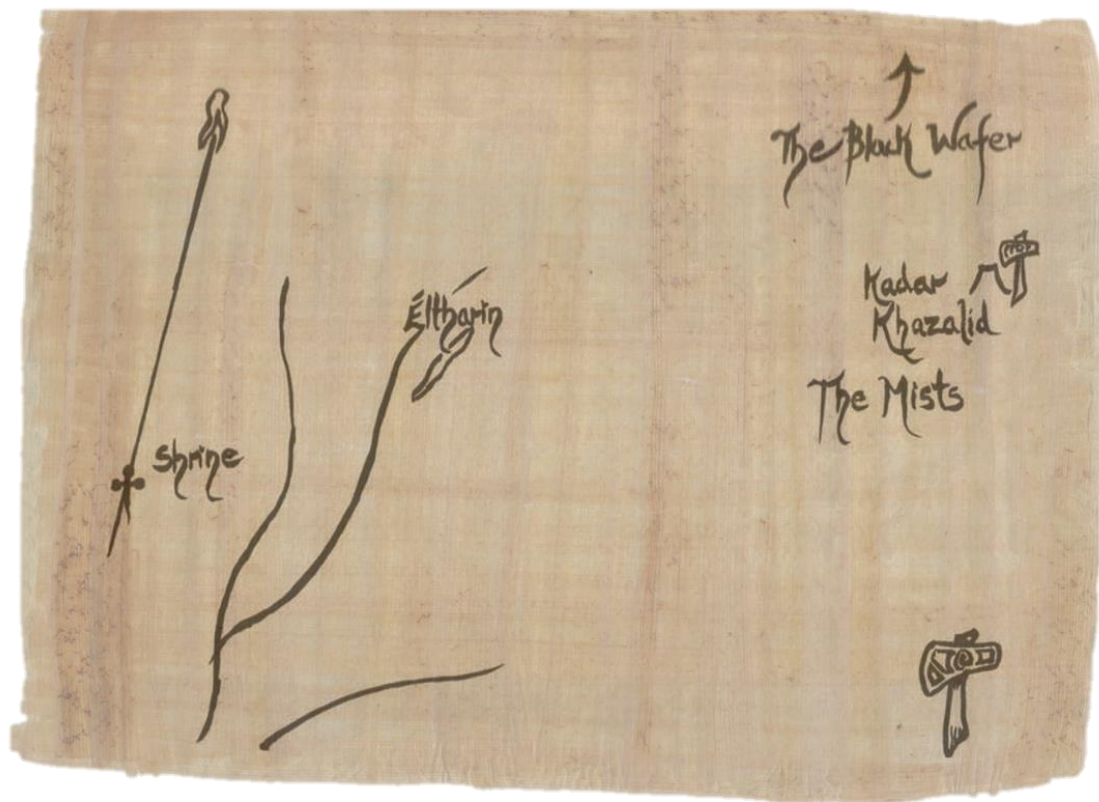 The Black Wafer
Kadar
Khazalid
Éltharin
The Mists
Shrine